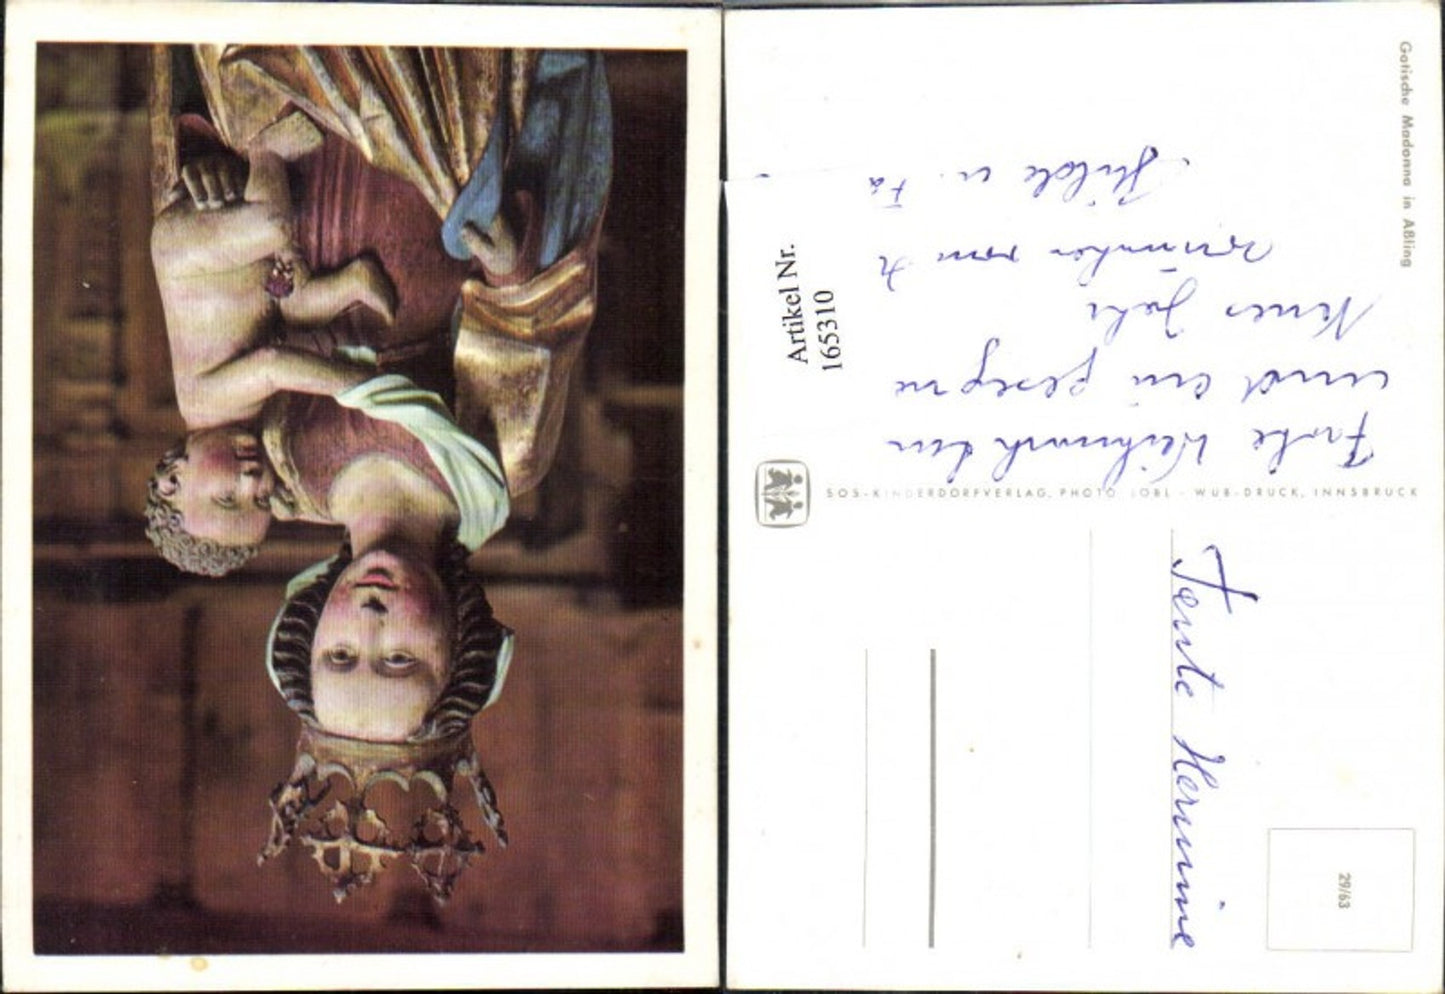 Gotische Madonna in Aßling
Artikel Nr.
165310
Frohe Weihnachten
und ein gesegne
Neues Jahr
wünschen von H
Hilde u. Fa
SOS-KINDERDORFVERLAG, PHOTO LÖBL - WUB-DRUCK, INNSBRUCK
Tante Hermine
29/63